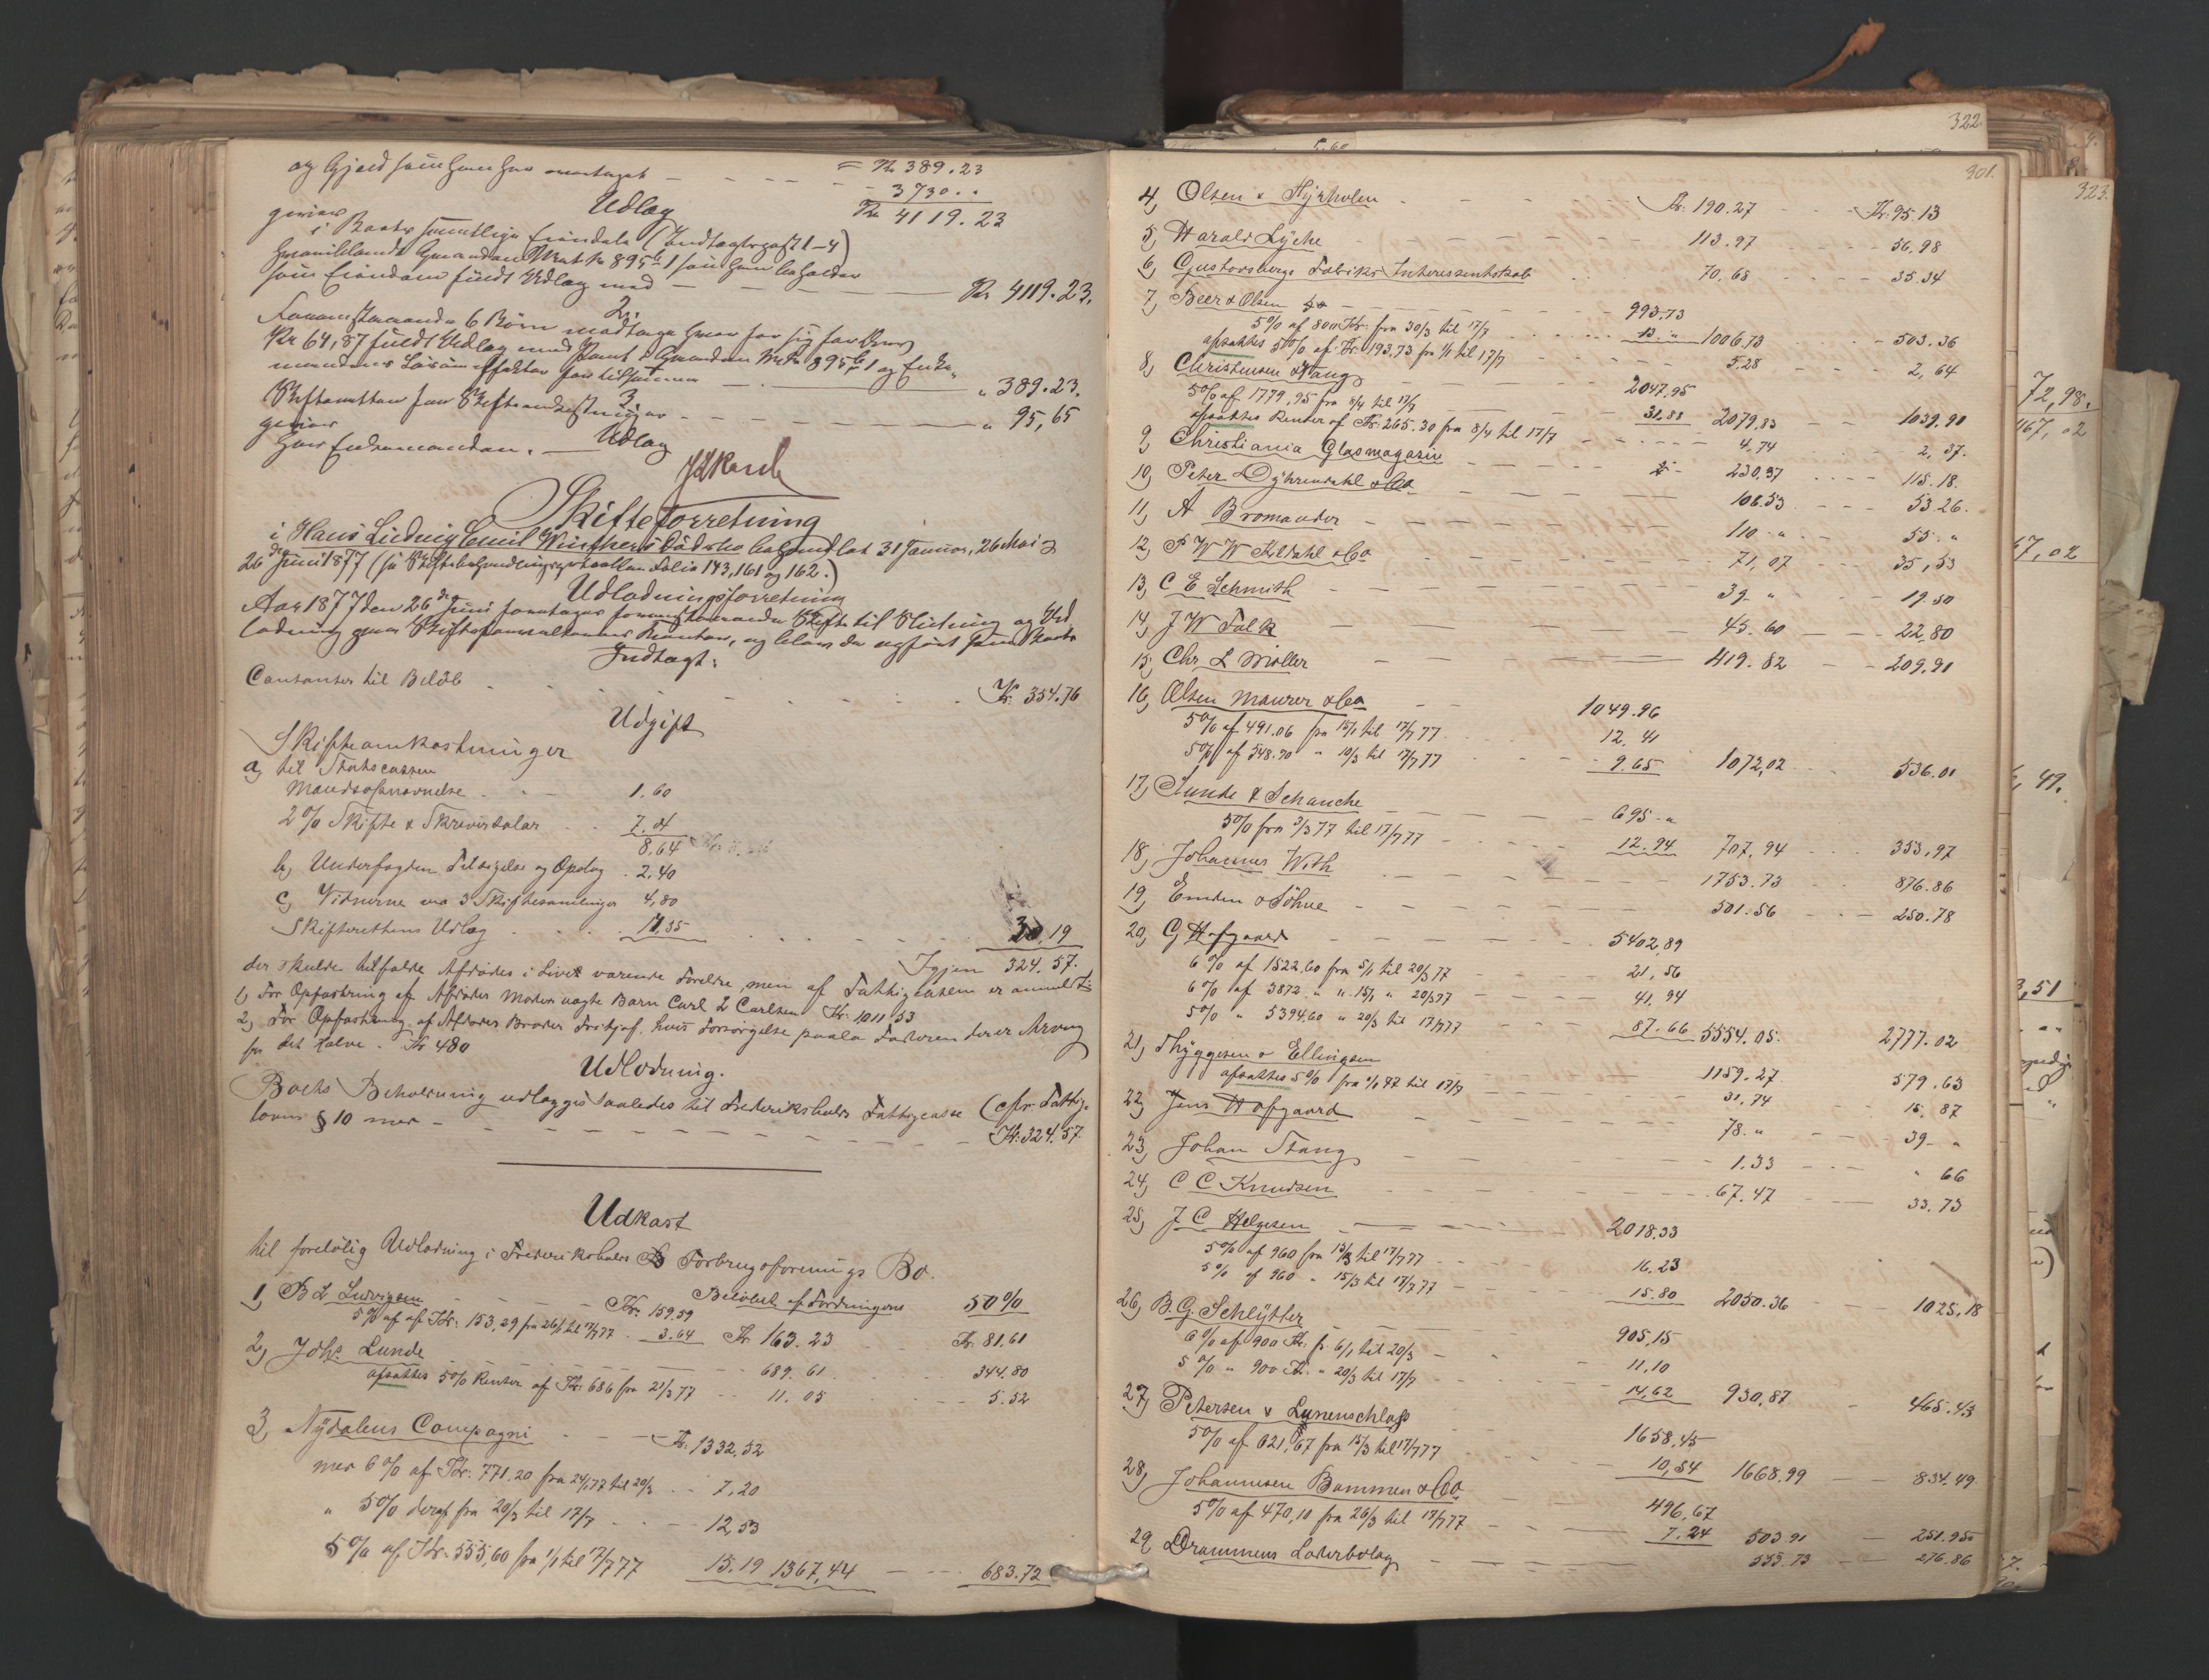 og Gjæld som han har overtaget — — — = Kr 389.23
3730 . .
Kr 4119.23
Udlæg
gives
i Boets samtlige Eiendele (Indtægtspost 1–4)
Gaarden Matr No 895b 1 som han beholder
som Eiendom fuldt Udlæg med — — — Kr 4119.23.
2.
6 Børn modtage hver for sig
Kr 64,87 fuldt Udlæg med Pant i Gaarden Mtr No 895b 1 og Enke-
mandens Løsøreeffekter for tilsammen — — " 389.23.
3.
Skifteretten for Skifteomkostninger — — — " 95,65
gives
hos Enkemanden. — Udlæg
Skifteforretning
i Hans Ludvig Emil Winthers Dødsbo behandlet 31 Januar, 26 Mai &
26 de Juni 1877 (se Skiftebehandlingsprotokollen Folio 143, 161 og 162.)
Udlodningsforretning
Aar 1877 den 26 de Juni foretages Skifte til Slutning og Ud
lodning paa Skifteforvalterens Kontor, og blev da opført som Boets
Indtægt:
Contanter til Beløb . . . . . Kr. 354.76
Udgift
Skifteomkostninger
a, til Statscassen
Mandsopnævnelse . . - 1.60
2% Skifte & Skriversalær . . 7.04
8,64
b, Underfogden Tilsigelse og Opslag . 2,40
c, Vidnerne ved 3 Skiftesamlinger 4,80
Skifterettens Udlæg . . . . 14,35 . . . . 30,19
Igjen 324.57.
der skulde tilfalde Afdødes i Livet værende Forældre, men af Fattigcassen er anmeldt:
1, For Opfostring af Afdødes Moders uægte Barn Carl L Carlsen Kr. 1011.53
2, For Opfostring af Afdødes Broder Fritjof, hvis Forsørgelse paala Faderen der er Arving
for det halve . Kr 480
Udlodning.
Boets Beholdning udlægges saaledes til Frederikshalds Fattigcasse (cfr. Fattig-
lovens § 10 med — — — — Kr: 324.57.
Udkast
til foreløbig Udlodning i Frederikshalds Forbrugsforenings Bo.
Beløbet af Fordringerne 50%
1, B L Ludvigsen — — — Kr. 159.59
5% af Kr: 153,29 fra 26/1 til 17/7 77 . 3.64 Kr 163.23 . . Kr. 81.61
2, Johs Lunde — — — 689.61 . . . 344.80
afsættes 5% Renter af Kr: 686 fra 21/3 77 - - 11.05 . . . 5.52
3, Nydalens Compagni — — Kr. 1332,52
med 6% af Kr: 771.20 fra 24/1 77 til 20/3 . . 7.20
" 5% deraf fra 20/3 til 17/7 . . - 12,53
5% af Kr: 555,60 fra 1/1 til 17/7 77 15.19 1367,44 — - - 683.72
322.
301.
323.
4, Olsen & Hyrholen - - - - Kr: 190,27 - - - Kr: 95.13
5, Harald Lyche - - - - 113.97 - - - 56.98
6, Gustavsbergs Fabriks Interessentskab . . 70.68 - - - 35.34
7, Beer & Olsen — — 993.73
5% af 800 Kr: fra 30/3 til 17/7 . . . 13. " 1006,73 . . - 503.36
afsættes 5% af Kr: 193,73 fra 1/1 til 17/7 - - 5.28 - - - 2,64
8, Christensen & Tang — — 2047.95
5% af 1779,95 fra 8/4 til 17/7 31,88 2079,83 - - 1039.91
afsættes Renter af Kr: 265.30 fra 8/4 til 17/7 - - - 4,74 . . . 2,37.
9, Christiania Glasmagasin — — — 230,37 . . . . 115.18.
10, Peter Dyhrendahl & Co — — — 106.53 . . . 53.26.
11, A Bromander — — — 110 . " . - 55. "
12, P W W Kildahl & Co — — — 71,07 - - - 35,53
13, C E Schmith — — — 39 - " - - 19.50
14, J W Falk — — — 45.60 — - 22,80
15, Chr. L Møller — — — 419.82 - - 209.91
16, Olsen Maurer & Co — — 1049.96
5% af 491.06 fra 15/1 til 17/7 77 . . . 12,41
5% af 548.90 " 10/3 til 17/7 77 . . . 9.65 1072,02 . . . 536.01
17, Lunde & Schanche — — — 695 - "
5% fra 3/3 77 til 17/7 77 — - - 12.94 707.94 . . . 353,97
18, Johannes With — — — 1753.73 . . . 876.86
19, Emden & Söhne — — — 501.56 — — 250.78
20, G Hofgaard — — — 5402,89
6% af 1522,60 fra 5/1 til 20/3 77 - - 21,56
6% af 3872. " " 15/1 " 20/3 77 - - 41,94
5% " 5394,60 " 20/3 til 17/7 77 - - 87.66 5554.05. 2777.02
21, Thyggesen & Ellingsen — — 1159.27 579.63
afsættes 5% fra 1/1 77 til 17/7 — 31.74 15,87
22, Jens Hofgaard — — — 78. " — - 39 - "
23, Johan Stang — — — 1.33 - - - " 66
24, C C Knudsen — — — 67.47 — 33.73
25, J C Helgesen — — 2018.33
5% af 960 fra 13/3 til 17/7 77 — - 16.23
5% af 960 " 15/3 til 17/7 77 — - 15.80 2050.36 - 1025,18
26, B. G. Schlytter — — 905,15
6% af 900 Kr. fr. 6/1 til 20/3 - - 11,10
5% " 900 Kr. " 20/3 til 17/7 - - 14,62 930,87 - 465.43
27, Petersen & Lunenschlos — 1658,45
5% af 621,67 fra 15/3 til 17/7 77 - - 10,54 1668.99 — 834.49
28, Johannesen Bommen & Co. — 496,67
5% af 470,10 fra 26/3 til 17/7 77 - - 7.24 503 91 — 251.95
29, Drammens Læderbolag — — — 553.73 - - 276.86
72,98.
167,02
67,02